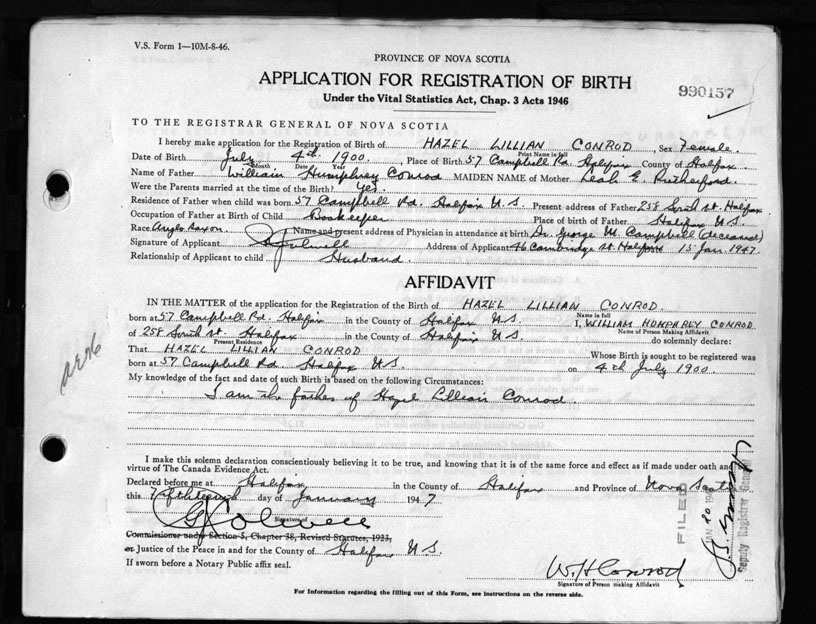 V.S. Form 1—10M-8-46.
PROVINCE OF NOVA SCOTIA
APPLICATION FOR REGISTRATION OF BIRTH
990157
Under the Vital Statistics Act, Chap. 3 Acts 1946
TO THE REGISTRAR GENERAL OF NOVA SCOTIA
I hereby make application for the Registration of Birth of HAZEL LILLIAN CONROD, Sex Female.
Print Name in full
Date of Birth July 4th 1900, Place of Birth 57 Campbell Rd. Halifax County of Halifax.
Month Date Year
Name of Father William Humphrey Conrod MAIDEN NAME of Mother Leah E. Rutherford.
Were the Parents married at the time of the Birth? Yes.
Residence of Father when child was born 57 Campbell Rd. Halifax N.S. Present address of Father 258 South St. Halifax
Occupation of Father at Birth of Child Bookeeper Place of birth of Father Halifax N.S.
Race Anglo Saxon. Name and present address of Physician in attendance at birth Dr. George M. Campbell (deceased)
Signature of Applicant Address of Applicant 46 Cambridge St. Halifax 15 Jan. 1947.
Relationship of Applicant to child Husband.
AFFIDAVIT
IN THE MATTER of the application for the Registration of the Birth of HAZEL LILLIAN CONROD.
Name in full
born at 57 Campbell Rd. Halifax in the County of Halifax N.S. I, WILLIAM HUMPHREY CONROD.
Name of Person Making Affidavit.
of 258 South St. Halifax in the County of Halifax N.S. do solemnly declare:
Present Residence
That HAZEL LILLIAN CONROD Whose Birth is sought to be registered was
born at 57 Campbell Rd. Halifax N.S. on 4th July 1900.
My knowledge of the fact and date of such Birth is based on the following Circumstances:
I am the father of Hazel Lillian Conrod.
I make this solemn declaration conscientiously believing it to be true, and knowing that it is of the same force and effect as if made under oath and
virtue of The Canada Evidence Act.
Declared before me at Halifax in the County of Halifax and Province of Nova Scotia
this Fifteenth day of January 1947
G Colwell
Signature of
Commissioner under Section 5, Chapter 38, Revised Statutes, 1923,
or Justice of the Peace in and for the County of Halifax N.S.
If sworn before a Notary Public affix seal.
W. H. Conrod
Signature of Person making Affidavit
For Information regarding the filling out of this Form, see instructions on the reverse side.
FILED
Deputy Registrar General